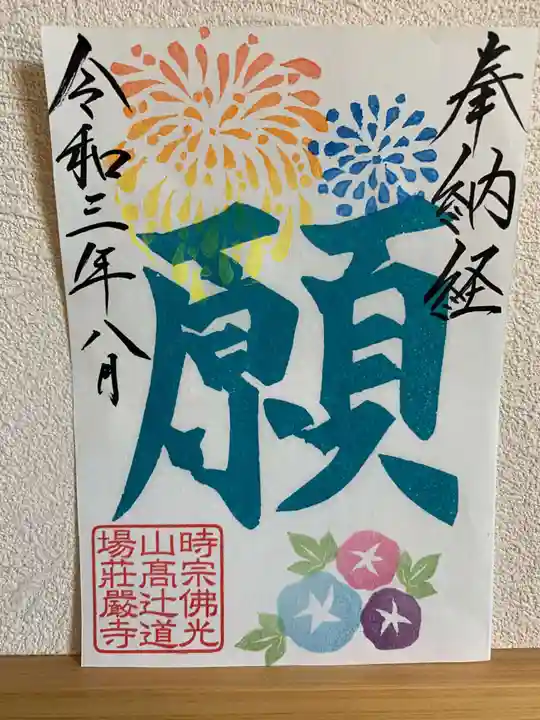 奉納経
願
令和三年八月
時宗佛光
山髙辻道
場莊嚴寺